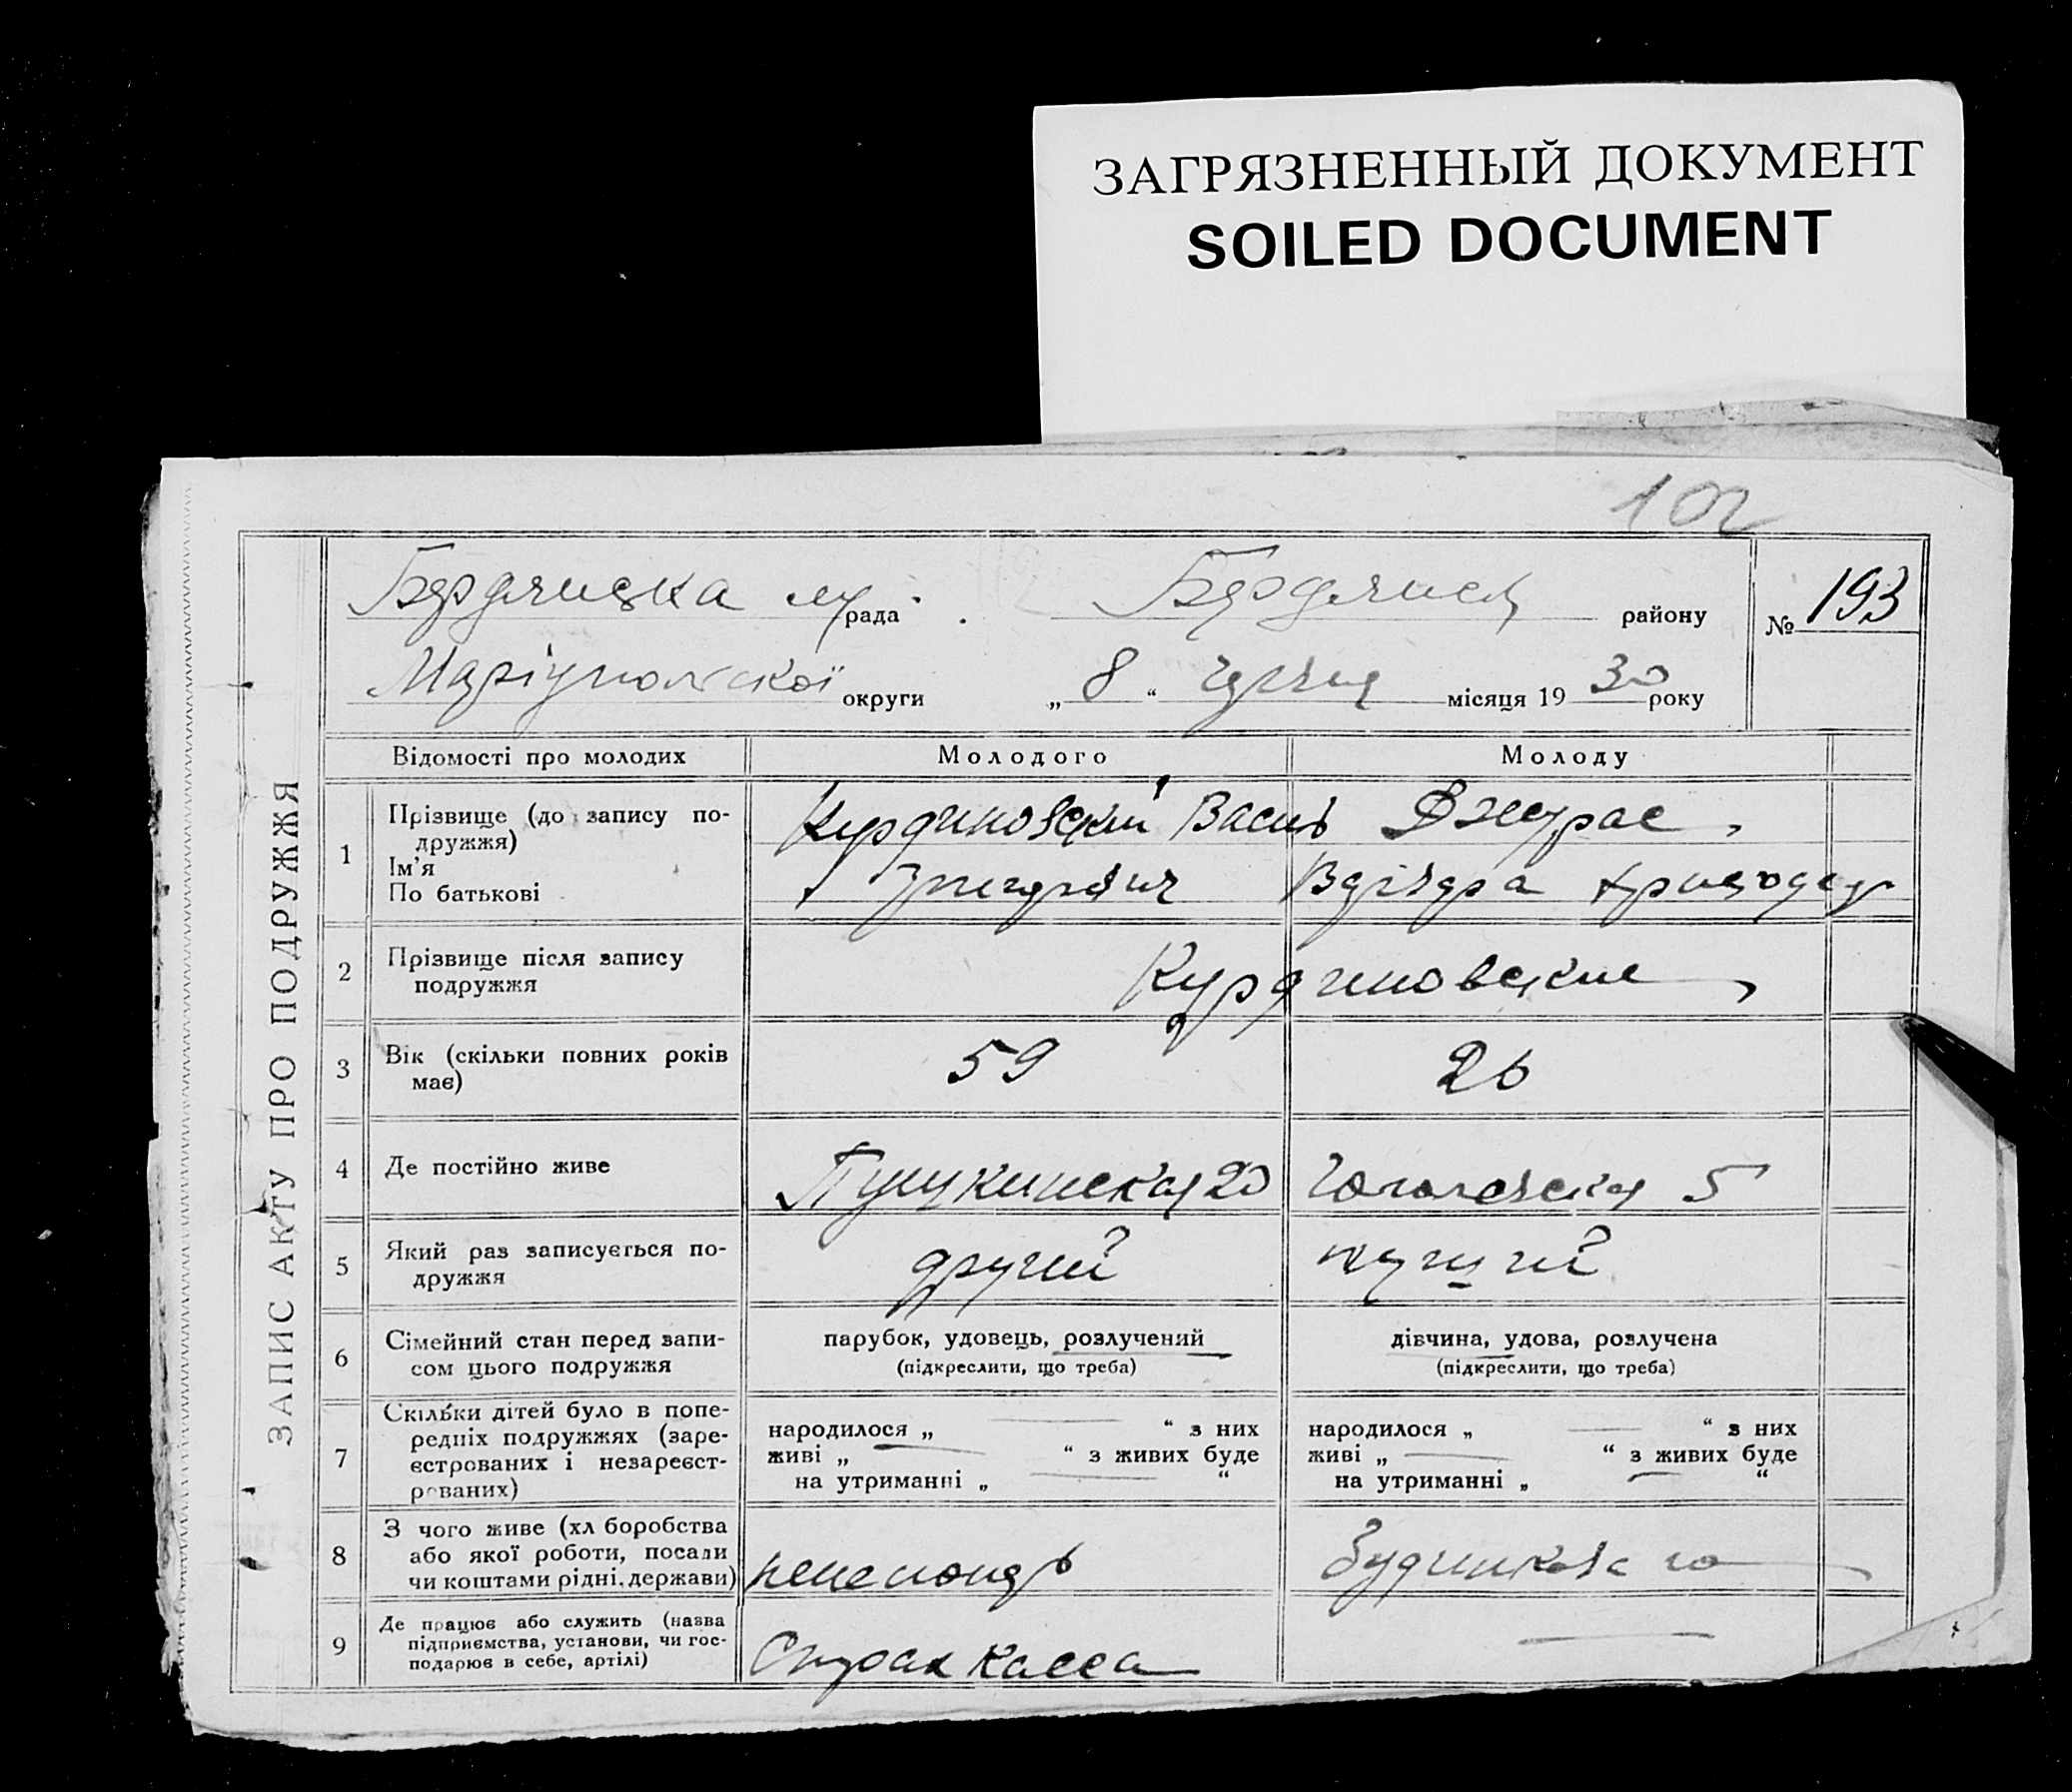 ЗАГРЯЗНЕННЫЙ ДОКУМЕНТ
SOILED DOCUMENT
102
ЗАПИС АКТУ ПРО ПОДРУЖЖЯ
Бердянська рада Бердянськ району № 193
Маріупольскої округи „ 8 “ місяця 19 30 року
Відомості про молодих Молодого Молоду
1 Прізвище (до запису подружжя) Ім'я По батькові
Курдиновский Василь
Джурас
2 Прізвище після запису подружжя
Курдиновские
3 Вік (скільки повних років має) 59 26
4 Де постійно живе Пушкинская 20 5
5 Який раз записується подружжя другий
6 Сімейний стан перед записом цього подружжя
парубок, удовець, розлучений (підкреслити, що треба)
дівчина, удова, розлучена (підкреслити, що треба)
7 Скільки дітей було в попередніх подружжях (зареєстрованих і незареєстрованих)
народилося „ “ з них живі „ “ з живих буде на утриманні „ “
народилося „ “ з них живі „ “ з живих буде на утриманні „ “
8 З чого живе (хл боробства або якої роботи, посади чи коштами рідні, держави)
9 Де працює або служить (назва підприємства, установи, чи господарює в себе, артілі)
Страх касса